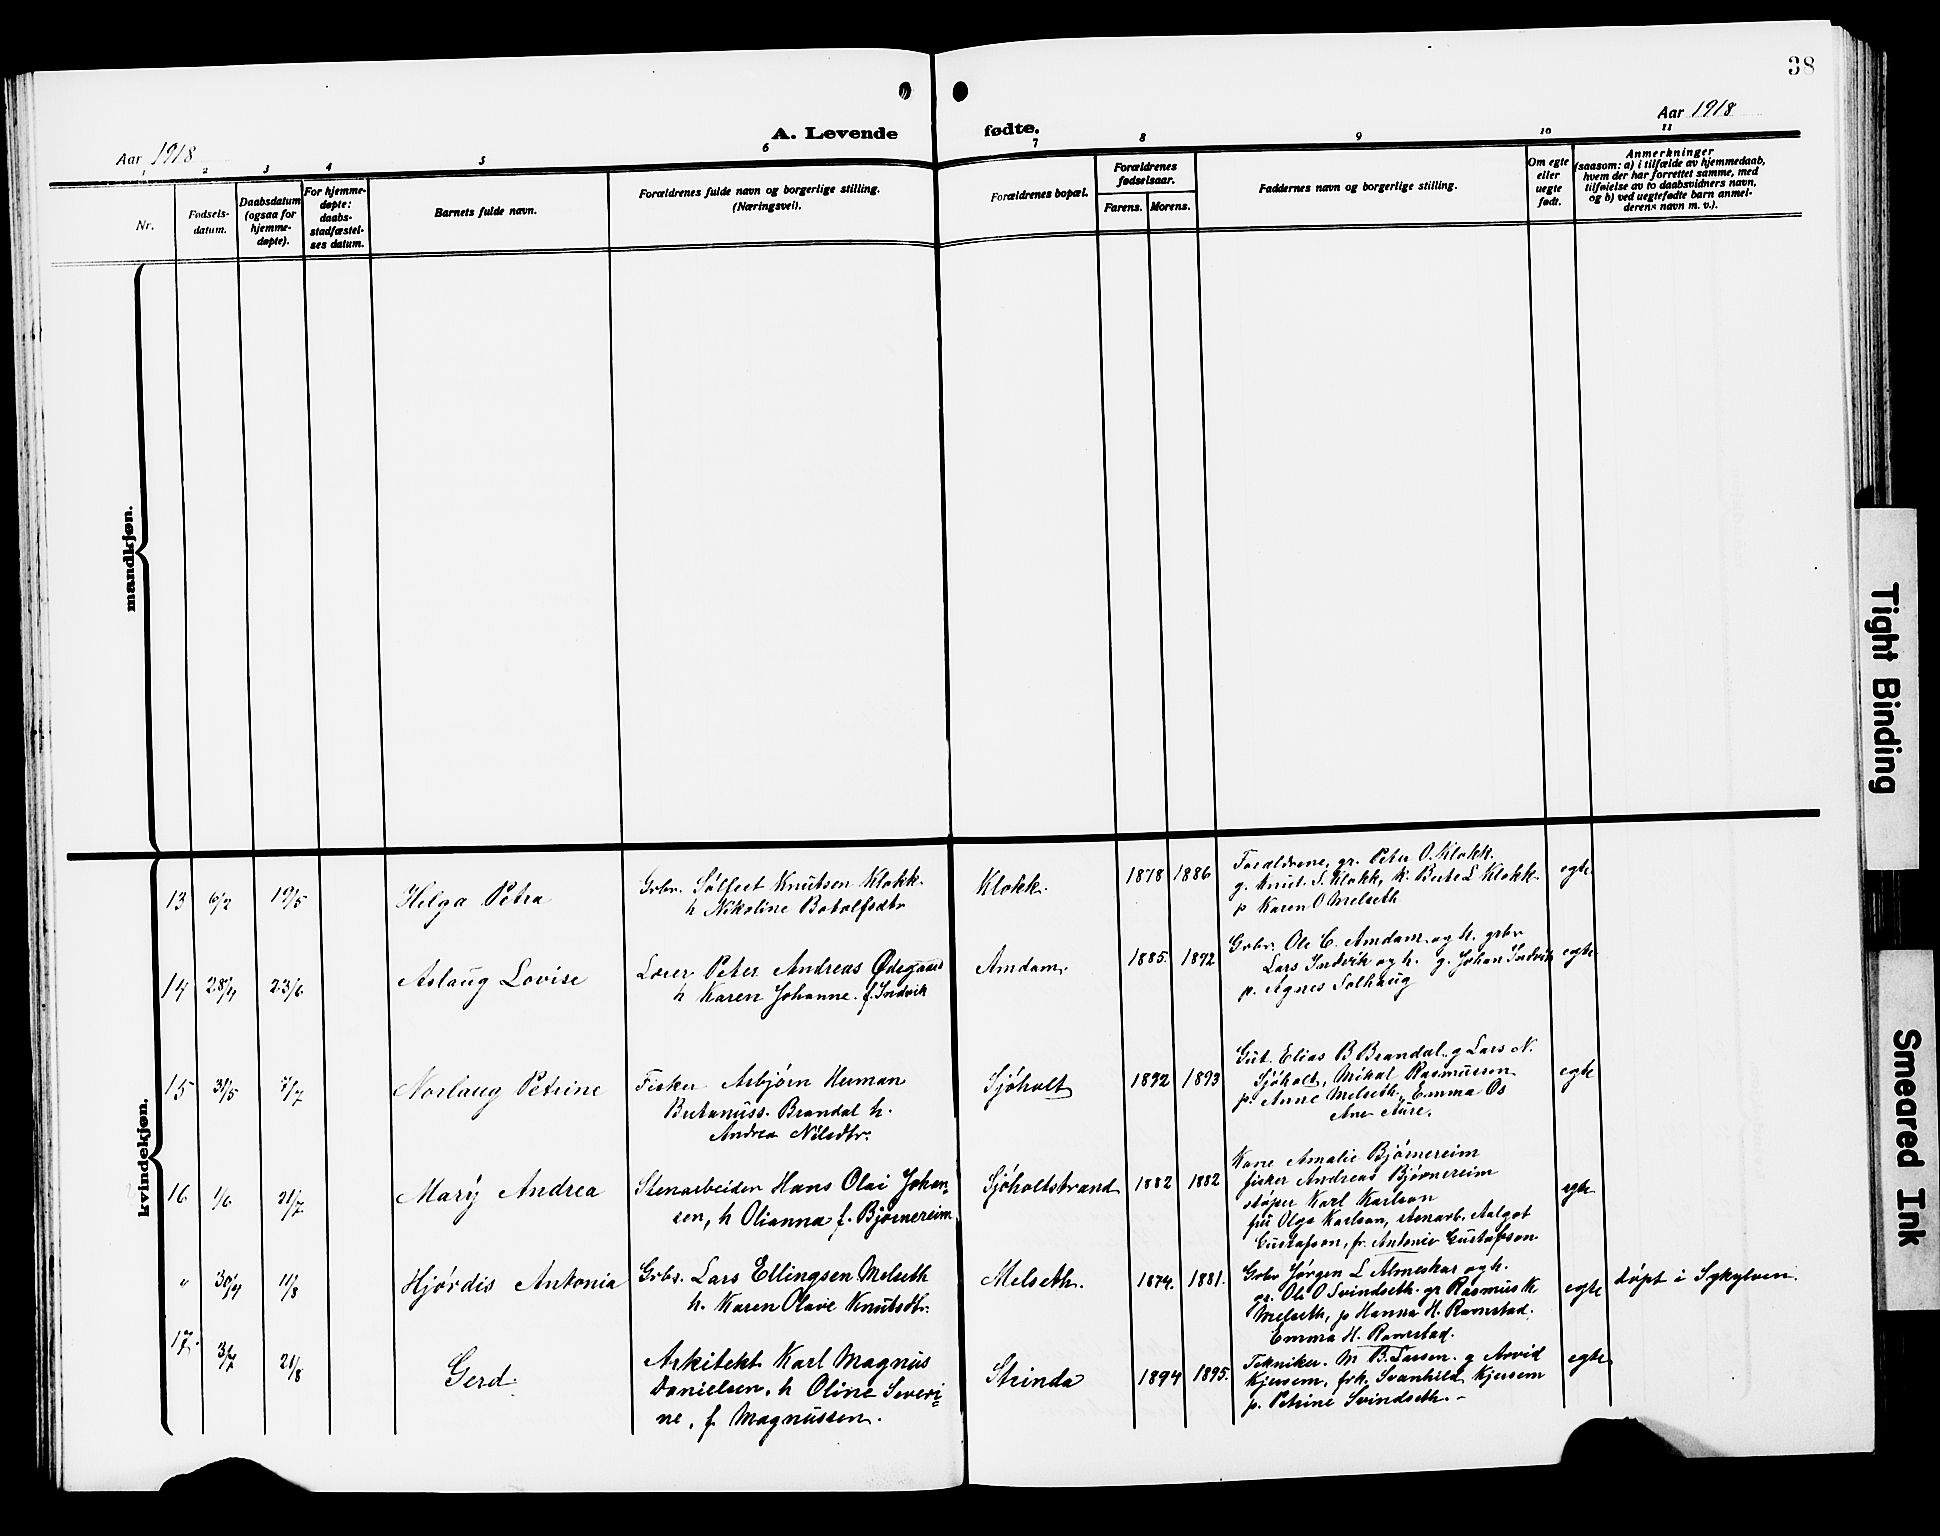 38
Aar 1918
A. Levende fødte.
Aar 1918
1 2 3 4 5 6 7 8 9 10 11
Nr.
Fødsels-
datum.
Daabsdatum
(ogsaa for
hjemme-
døpte).
For hjemme-
døpte:
daabs-
stadfæstel-
ses datum.
Barnets fulde navn.
Forældrenes fulde navn og borgerlige stilling.
(Næringsvei).
Forældrenes bopæl.
Forældrenes
fødselsaar.
Farens. Morens.
Faddernes navn og borgerlige stilling.
Om egte
eller
uegte
født.
Anmerkninger
(saasom: a) i tilfælde av hjemmedaab,
hvem der har forrettet samme, med
tilføielse av to daabsvidners navn,
og b) ved uegtefødte barn anmel-
derens navn m. v.).
mandkjøn.
kvindekjøn.
13 6/2 19/5 Helga Petra
Grbr. Sölfest Knutsen Klokk.
h Nikoline Botolfsdtr
Klokk. 1878 1886
Forældrene, gr. Peter O. Klokk.
g. Knut S. Klokk, k. Berte L Klokk.
p Karen O Melseth
egte
14 28/4 23/6 Aslaug Lovise
Lærer Peter Andreas Ødegaard
h Karen Johanne. f. Indvik
Amdam. 1885. 1892
Grbr. Ole C. Amdam og h. grbr
Lars Indvik og h. g. Johan Indvik
p. Agnes Solhaug
egte
15 31/5 7/7 Norlaug Petrine
Fisker Asbjörn Herman
Bertinuss. Brandal h.
Andrea Nilsdtr.
Sjöholt 1892 1893
Gut. Elias B Brandal. g Lars N.
Sjöholt, Mikal Rasmussen
p. Anne Melseth, Emma Os
Ane Aure.
egte
16 1/6 21/7 Mary Andrea
Stenarbeider Hans Olai Johan-
sen, h Olianna f. Bjørnereim
Sjöholtstrand 1882 1882
Kone Amalie Bjørnereim
fisker Andreas Bjørnereim
støper Karl Karlson
fru Olga Karlson, stenarb. Aalgot
Gustafson, fr. Antonie Gustafsson
egte
" 30/4 11/8 Hjördis Antonia
Grbs. Lars Ellingsen Melseth
h. Karen Olave Knutsdtr.
Melseth. 1874. 1881.
Grbr Jørgen L Almeskar og h.
gr. Ole O Svindseth. gr Rasmus K
Melseth, p Hanna H. Ramstad.
Emma H. Ramstad.
egte döpt i Sykylven.
17. 3/7 21/8 Gerd.
Arkitekt Karl Magnus
Danielsen, h Oline Severi-
ne, f Magnussen.
Strinda 1894 1895.
Tekniker. M B. Larsen. g Arvid
Kjersem, frk. Svanhild Kjersem
p. Petrine Svindseth. -
egte
Tight Binding
Smeared Ink